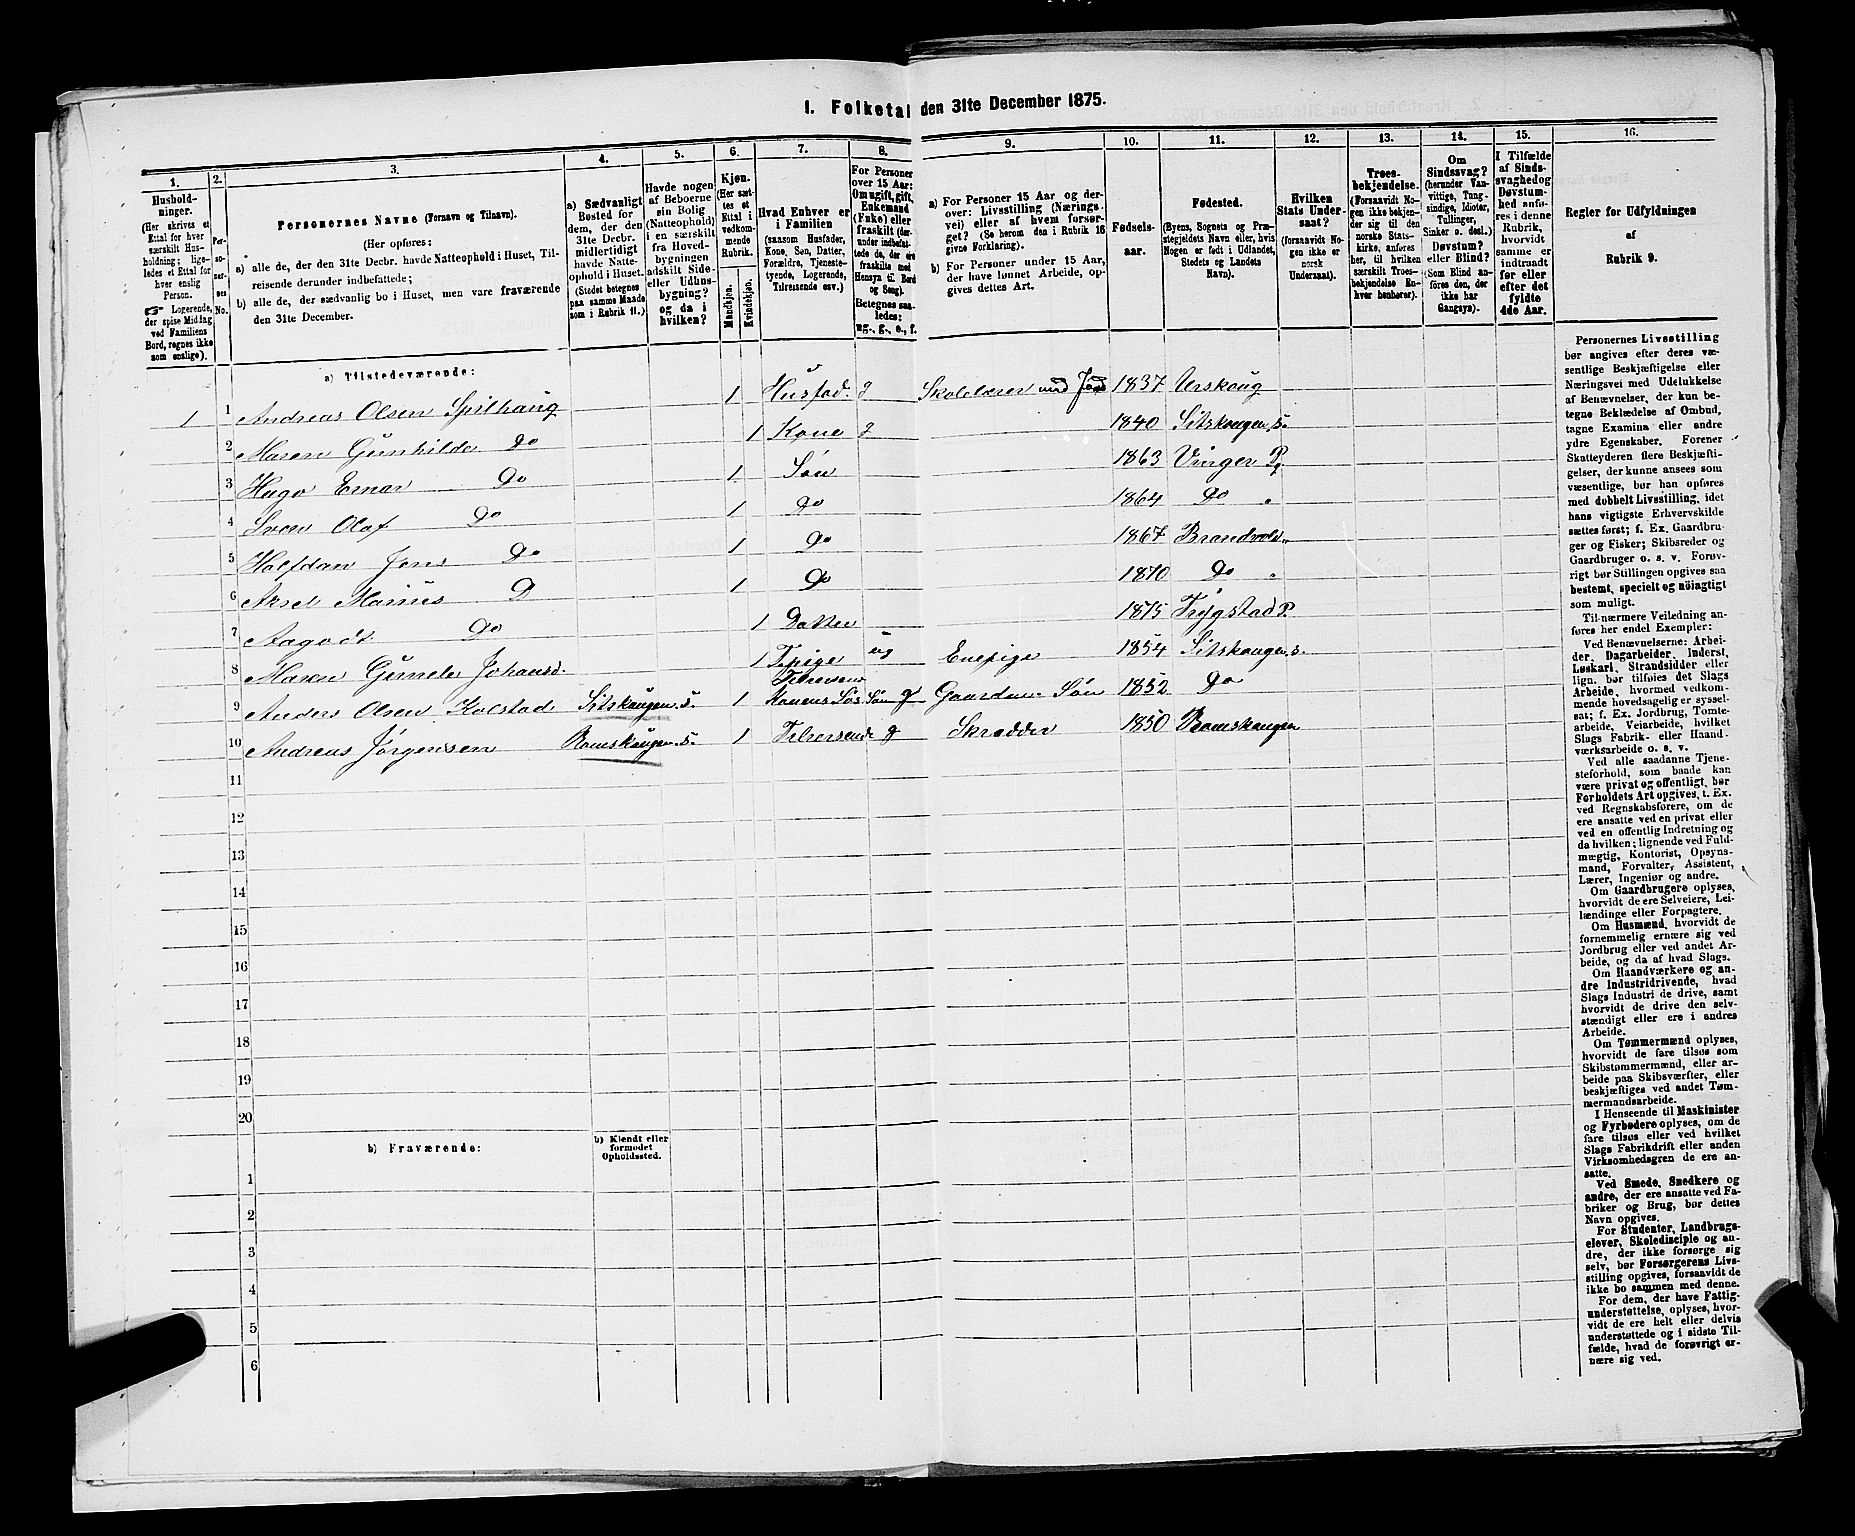 1. Folketal den 31te December 1875.
1. 2. 3. 4. 5. 6. 7. 8. 9. 10. 11. 12. 13. 14. 15. 16.
Hushold-
ninger.
(Her skrives et
Ettal for hver
særskilt Hus-
holdning; lige-
ledes et Ettal for
hver enslig
Person.
☞ Logerende,
der spise Middag
ved Familiens
Bord, regnes ikke
som enslige).
Per-
so-
ner-
nes
No.
Personernes Navne (Fornavn og Tilnavn).
(Her opføres:
a) alle de, der den 31te Decbr. havde Natteophold i Huset, Til-
reisende derunder indbefattede;
b) alle de, der sædvanlig bo i Huset, men vare fraværende
den 31te December.
a) Sædvanligt
Bosted for
dem, der den
31te Decbr.
midlertidigt
havde Natte-
ophold i Huset.
(Stedet betegnes
paa samme Maade
som i Rubrik 11.)
Havde nogen
af Beboerne
sin Bolig
(Natteophold)
i en særskilt
fra Hoved-
bygningen
adskilt Side-
eller Udhus-
bygning?
og da i
hvilken?
Kjøn.
(Her sæt-
tes et
Ettal i
vedkom-
mende
Rubrik.
Mandkjøn.
Kvindekjøn.
Hvad Enhver er
i Familien
(saasom Husfader,
Kone, Søn, Datter,
Forældre, Tjeneste-
tyende, Logerende,
Tilreisende osv.)
For Personer
over 15 Aar:
Om ugift, gift,
Enkemand
(Enke) eller
fraskilt (der-
under indbefat-
tede de, der ere
fraskilte med
Hensyn til Bord
og Seng).
Betegnes saa-
ledes:
ug., g., e., f.
a) For Personer 15 Aar og der-
over: Livsstilling (Nærings-
vei) eller af hvem forsør-
get? (Se herom den i Rubrik 16
givne Forklaring).
b) For Personer under 15 Aar,
der have lønnet Arbeide, op-
gives dettes Art.
Fødsels-
aar.
Fødested.
(Byens, Sognets og Præ-
stegjeldets Navn eller, hvis
Nogen er født i Udlandet,
Stedets og Landets
Navn).
Hvilken
Stats Under-
saat?
(forsaavidt No-
gen ikke er
norsk
Undersaat).
Troes-
bekjendelse.
(Forsaavidt No-
gen ikke bekjen-
der sig til den
norske Stats-
kirke, anføres
her, til hvilken
særskilt Troes-
bekjendelse En-
hver henhører).
Om
Sindssvag?
(herunder Van-
vittige, Tung-
sindige, Idioter,
Tullinger,
Sinker o. desl.)
Døvstum?
eller Blind?
(Som Blind an-
føres den, der
ikke har
Gangsyn).
I Tilfælde
af Sinds-
svaghed og
Døvstum-
hed anfø-
res i denne
Rubrik,
hvorvidt
samme er
indtraadt
før eller
efter det
fyldte
4de Aar.
Regler for Udfyldningen
af
Rubrik 9.
a) Tilstedeværende:
1 1 Andreas Olsen Spilhaug 1 Husfad. g Skolelærer med Jord 1837 Urskoug
2 Maren Gunhilde Do 1 Kone g 1840 Sitskougen s.
3 Hugo Einar Do 1 Søn 1863 Vinger P
4 Sven Olaf Do 1 Do 1864 Do "
5 Halfdan Jens Do 1 Do 1867 Brandvold "
6 Aksel Marius D 1 Do 1870 Do "
7 Aagodt Do 1 Datter 1875 Trygstad P.
8 Maren Gunele Johansd. 1 Tpige ug Enepige 1854 Sitskougen s.
9 Anders Olsen Kolstad Sitskougen s. 1 Tilreisend Konens Søs. Søn g Gaardm. Søn 1852 Do
10 Andreas Jørgensen Romskougen s. 1 Tilreisende g Skrædder 1850 Romskougen
11
12
13
14
15
16
17
18
19
20
b) Fraværende:
b) Kjendt eller
formodet
Opholdssted.
1
2
3
4
5
6
Personernes Livsstilling
bør angives efter deres væ-
sentlige Beskjæftigelse eller
Næringsvei med Udelukkelse
af Benævnelser, der kun be-
tegne Beklædelse af Ombud,
tagne Examina eller andre
ydre Egenskaber. Forener
Skatteyderen flere Beskjæfti-
gelser, der kunne ansees som
væsentlige, bør han opføres
med dobbelt Livsstilling, idet
hans vigtigste Erhvervskilde
sættes først; f. Ex. Gaardbru-
ger og Fisker; Skibsreder og
Gaardbruger o. s. v. Forøv-
rigt bør Stillingen opgives saa
bestemt, specielt og nöiagtigt
som muligt.
Til nærmere Veiledning an-
føres her endel Exempler:
Ved Benævnelserne: Arbei-
der, Dagarbeider, Inderst,
Løskarl, Strandsidder eller
lign. bør tilføies det Slags
Arbeide, hvormed vedkom-
mende hovedsagelig er syssel-
sat; f. Ex. Jordbrug, Tomte-
arbeide, Veiarbeide, hvilket
Slags Fabrik- eller Haand-
værksarbeide o. s. v.
Ved alle saadanne Tjene-
steforhold, som baade kan
være privat og offentligt, bør
Forholdets Art opgives, t. Ex.
ved Regnskabsførere, om de
ere ansatte ved en privat eller
ved en offentlig Indretning og
da hvilken; lignende ved Fuld-
mægtig, Kontorist, Opsyns-
mand, Forvalter, Assistent,
Lærer, Ingeniør og andre.
Om Gaardbrugere oplyses,
hvorvidt de ere Selveiere, Lei-
lændinge eller Forpagtere.
Om Husmænd, hvorvidt de
fornemmelig ernære sig ved
Jordbrug eller ved andet Ar-
beide, og da af hvad Slags.
Om Haandværkere og an-
dre Industridrivende, hvad
Slags Industri de drive, samt
hvorvidt de drive den selv-
stændigt eller ere i andres
Arbeide.
Om Tømmermænd oplyses,
hvorvidt de fare tilsøs som
Skibstømmermænd, eller ar-
beide paa Skibsværfter, eller
beskjæftiges ved andet Tøm-
mermandsarbeide.
I Henseende til Maskinister
og Fyrbødere oplyses, om de
fare tilsøs eller ved hvilket
Slags Fabrikdrift eller anden
Virksomhedsgren de ere an-
satte.
Ved Smede, Snedkere og
andre, der ere ansatte ved Fa-
briker og Brug, bør dettes
Navn opgives.
For Studenter, Landbrugs-
elever, Skoledisciple og an-
dre, der ikke forsørge sig
selv, bør Forsørgerens Livs-
stilling opgives, forsaavidt de
ikke bo sammen med denne.
For dem, der have Fattig-
understøttelse, oplyses, hvor-
vidt de ere helt eller delvis
understøttede og i sidste Til-
fælde, hvad de forøvrigt er-
nære sig ved.